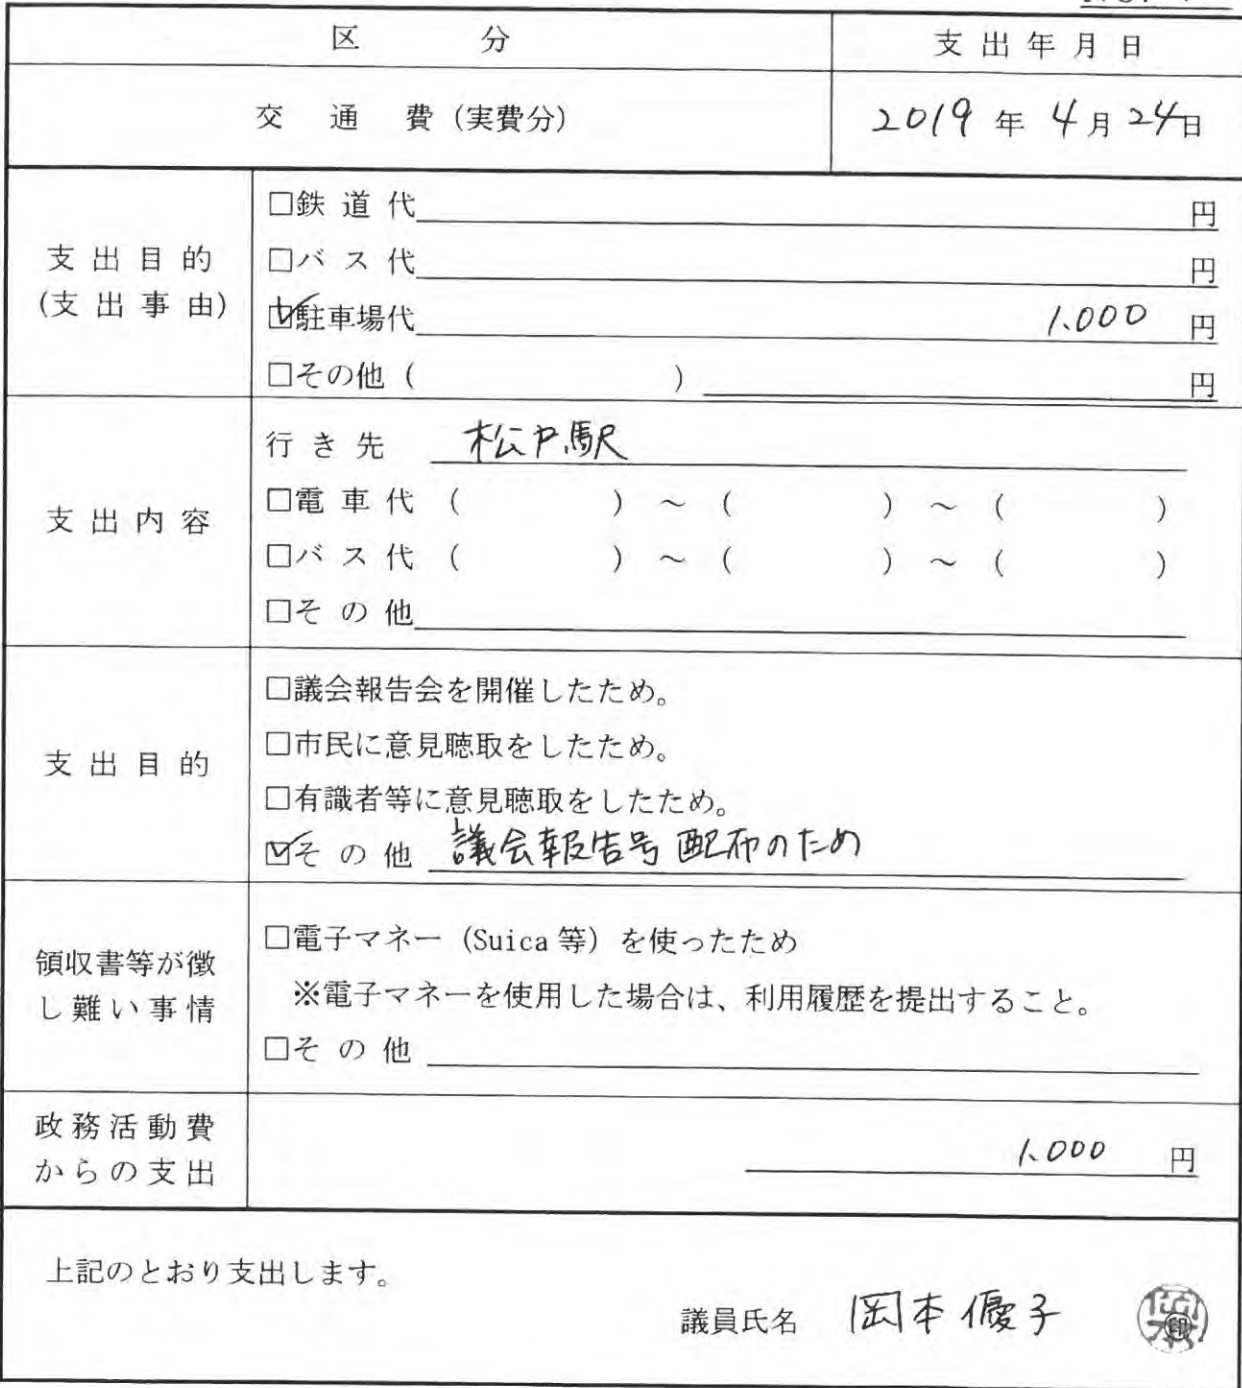 区 分 支出年月日
交 通 費 (実費分) 2019 年 4 月 24 日
支出目的
(支出事由)
□鉄道代 円
□バス代 円
☑駐車場代 1,000 円
□その他 ( ) 円
支出内容
行き先 松戸駅
□電車代 ( ) ～ ( ) ～ ( )
□バス代 ( ) ～ ( ) ～ ( )
□その他
支出目的
□議会報告会を開催したため。
□市民に意見聴取をしたため。
□有識者等に意見聴取をしたため。
☑その他 議会報告号配布のため
領収書等が徴
し難い事情
□電子マネー (Suica等) を使ったため
※電子マネーを使用した場合は、利用履歴を提出すること。
□その他
政務活動費
からの支出
1,000 円
上記のとおり支出します。
議員氏名 岡本優子 ㊞
岡本